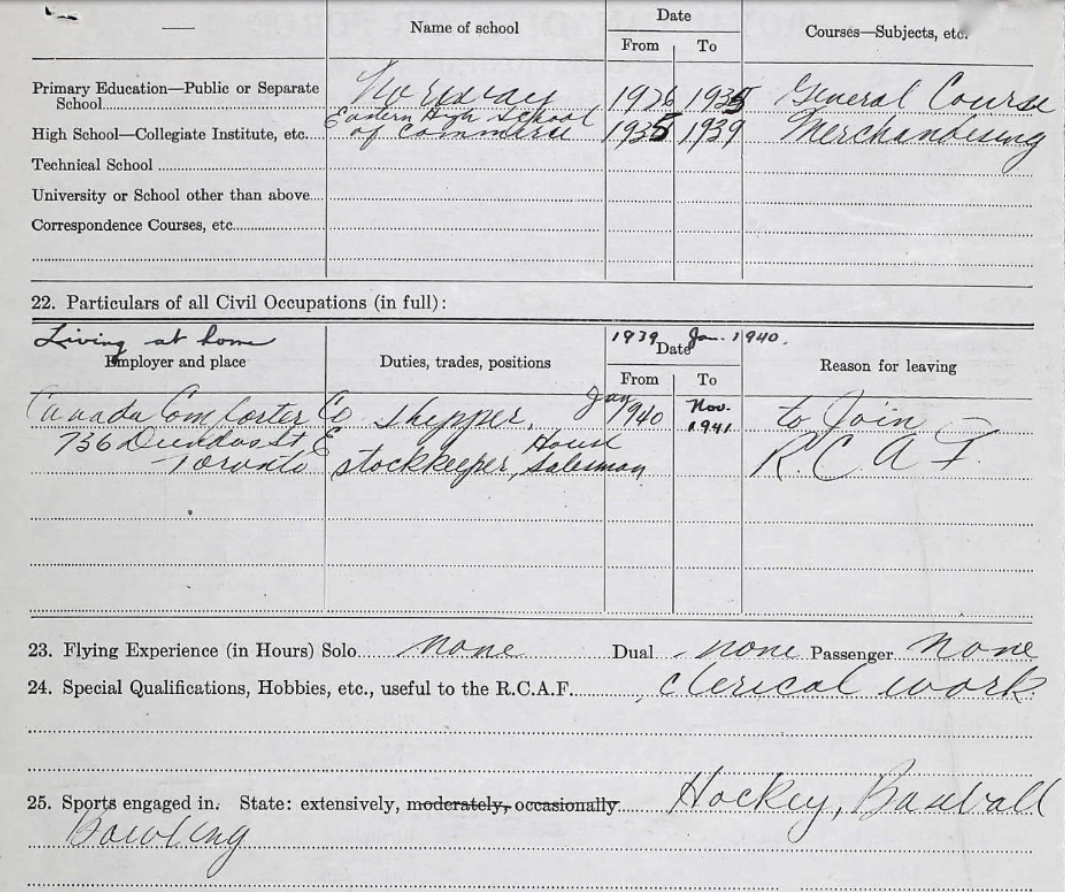 Name of school Date Courses—Subjects, etc.
From To
Primary Education—Public or Separate
School Norway 1926 1935 General Course
Eastern High School
High School—Collegiate Institute, etc. of Commerce 1935 1939 Merchandising
Technical School
University or School other than above
Correspondence Courses, etc.
22. Particulars of all Civil Occupations (in full):
Living at home 1939 Jan. 1940.
Employer and place Duties, trades, positions Date Reason for leaving
From To
Canada Comforter Co shipper, Jan 1940 Nov. 1941. to Join
736 Dundas St E House
Toronto stockkeeper, Salesman R.C.A.F.
23. Flying Experience (in Hours) Solo none Dual none Passenger none
24. Special Qualifications, Hobbies, etc., useful to the R.C.A.F. clerical work.
25. Sports engaged in. State: extensively, moderately, occasionally Hockey, Baseball
Bowling